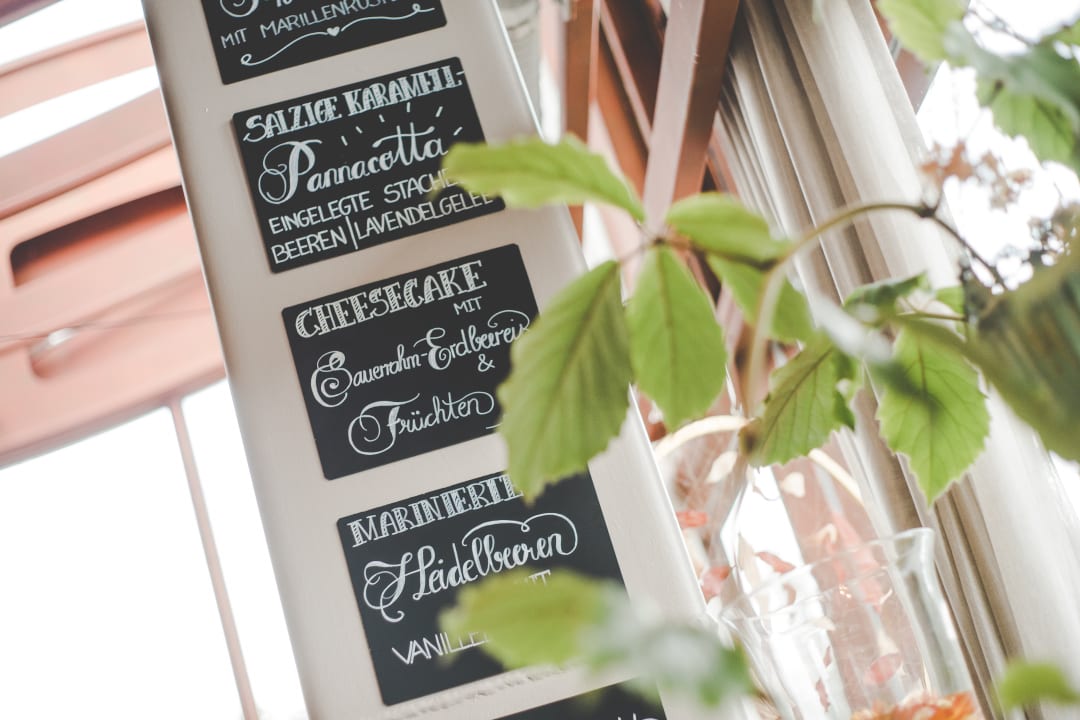 MIT
SALZIGE KARAMELL-
Pannacotta
EINGELEGTE
BEEREN|LAVENDELGELEE
CHEESECAKE
MIT
Sauerrahm-Erdbeereis
&
Früchten
MARINIERTE
Heidelbeeren